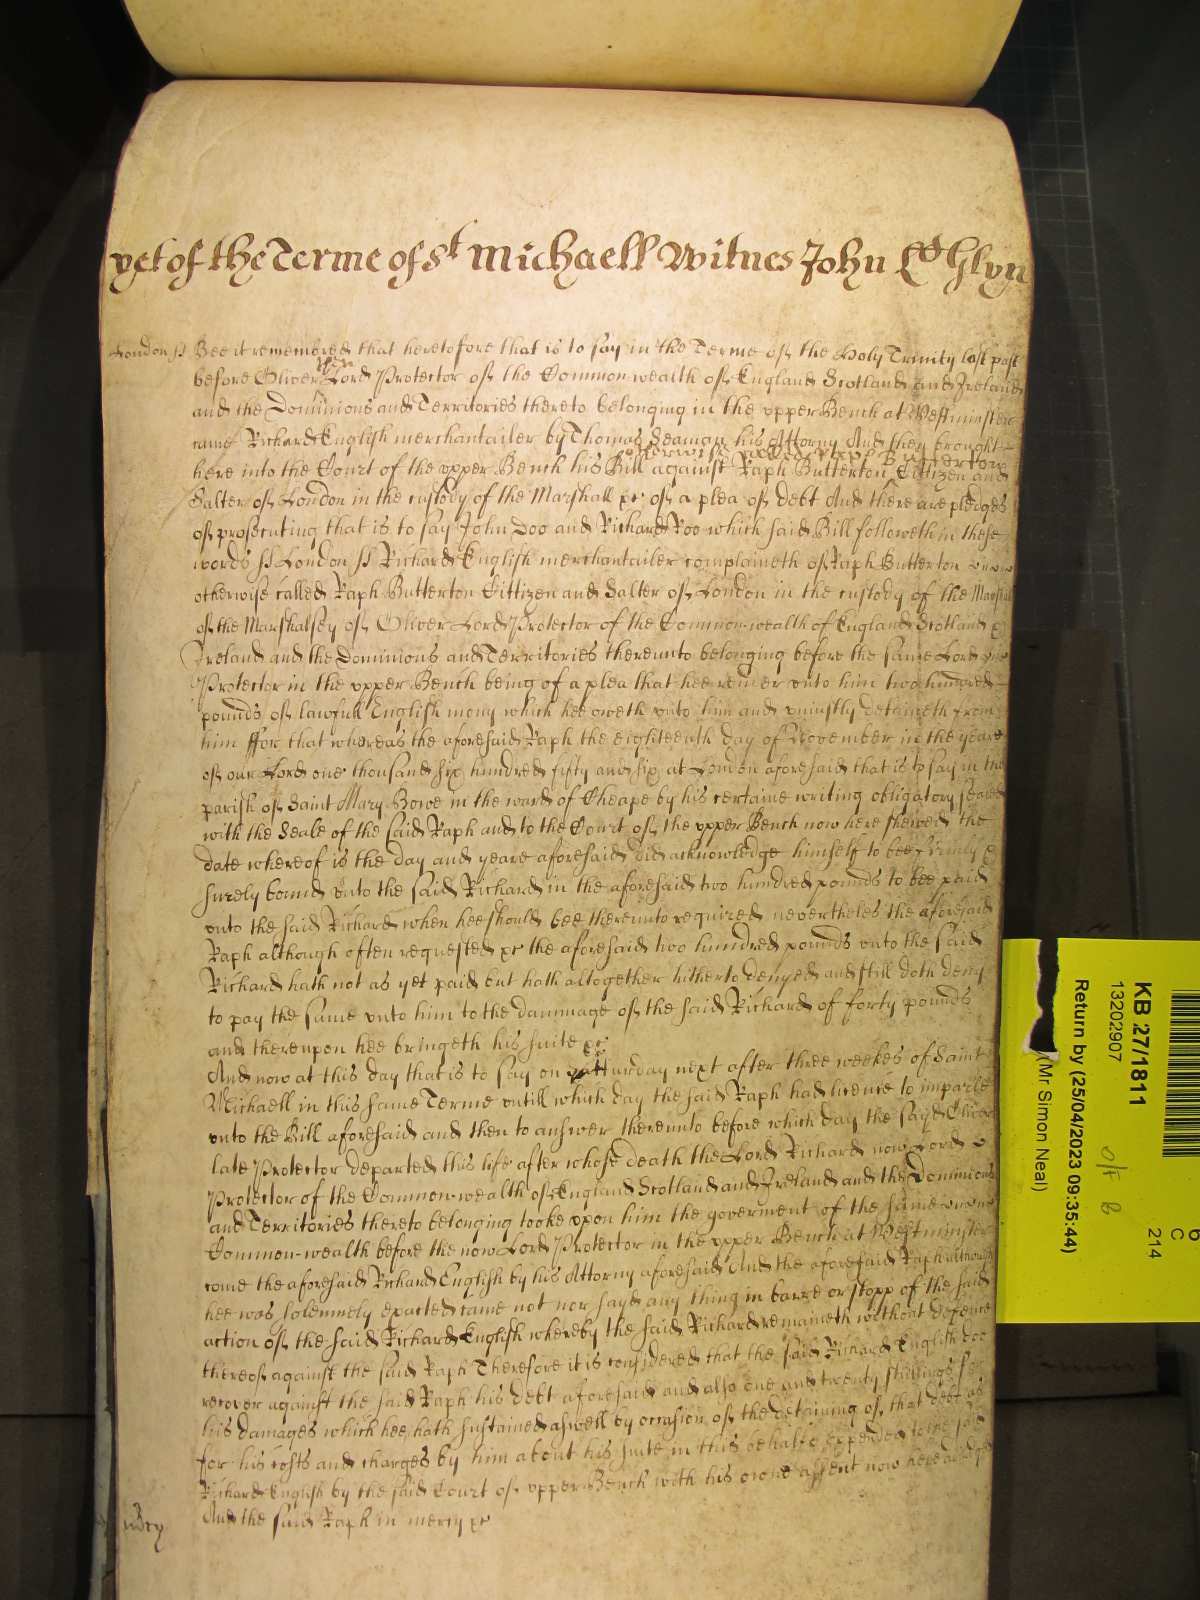 yet of the Terme of St Michaell Witnes John Ld Glyn
London ss Bee it remembred that heretofore that is to say in the Terme of the Holy Trinity last past
then
before Oliver Lord Protector of the Common-wealth of England Scotland and Ireland
and the Dominions and Territories thereto belonging in the upper Bench at Westminster
came Richard English merchantailer by Thomas Seaman his Attorny And then brought
otherwise called Raph Butterton
here into the Court of the upper Bench his Bill against Raph Butterton Cittizen and
Salter of London in the custody of the Marshall &c of a plea of debt And there are pledges
of prosecuting that is to say John Doo and Richard Roo which said Bill followeth in these
words ss London ss Richard English merchantailer complaineth of Raph Butterton
otherwise called Raph Butterton Cittizen and Salter of London in the custody of the Marshall
of the Marshalsey of Oliver Lord Protector of the Common-wealth of England Scotland &
Ireland and the Dominions and Territories thereunto belonging before the same Lord
Protector in the upper Bench being of a plea that hee render unto him two hundred
pounds of lawfull English mony which hee oweth unto him and uniustly detaineth from
him ffor that whereas the aforesaid Raph the eighteenth day of November in the yeare
of our Lord one thousand six hundred fifty and six at London aforesaid that is to say in the
parish of Saint Mary Bowe in the ward of Cheape by his certaine writing obligatory sealed
with the Seale of the said Raph and to the Court of the upper Bench now here shewed the
date whereof is the day and yeare aforesaid did acknowledge himself to bee firmly &
surely bound unto the said Richard in the aforesaid two hundred pounds to bee paid
unto the said Richard when hee should bee thereunto required nevertheles the aforesaid
Raph although often requested &c the aforesaid two hundred pounds unto the said
Richard hath not as yet paid but hath altogether hitherto denyed and still doth deny
to pay the same unto him to the dammage of the said Richard of forty pounds
and thereupon hee bringeth his suite &c
And now at this day that is to say on next after three weekes of Saint
Michaell in this same Terme untill which day the said Raph had licence to imparle
unto the Bill aforesaid and then to answer thereunto before which day the sayd Oliver
late Protector departed this life after whose death the Lord Richard now Lord
Protector of the Common-wealth of England Scotland and Ireland and the Dominions
and Territories thereto belonging tooke upon him the goverment of the same
Common-wealth before the now Lord Protector in the upper Bench at Westminster
come the aforesaid Richard English by his Attorny aforesaid And the aforesaid Raph although
hee was solemnely exacted came not nor sayd any thing in barre or stopp of the said
action of the said Richard English whereby the said Richard remaineth without defence
thereof against the said Raph Therefore it is considered that the said Richard English doe
recover against the said Raph his debt aforesaid and also one and twenty shillings for
his damages which hee hath sustained aswell by occasion of the detaining of that debt as
for his costs and charges by him about his suite in this behalfe expended to the said
Richard English by the said Court of upper Bench with his owne assent now here adiudged
And the said Raph in mercy &c
mercy
KB 27/1811
13202907
Return by (25/04/2023 09:35:44)
(Mr Simon Neal)
6
C
214